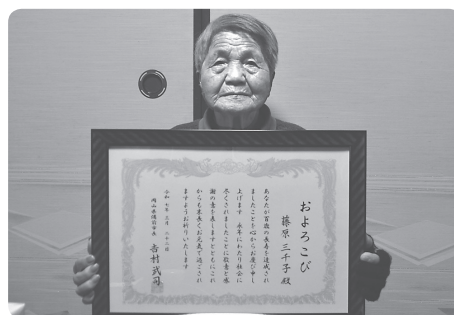 およろこび
藤原 三千子 殿
あなたが百歳の長寿を達成され
ましたことを心からお慶び申し
上げます 永年にわたり社会に
尽くされましたことに敬意と感
謝の意を表しますとともにこれ
からも末長くお元気で過ごされ
ますようお祈りいたします
令和七年三月二十二日
吉村武司